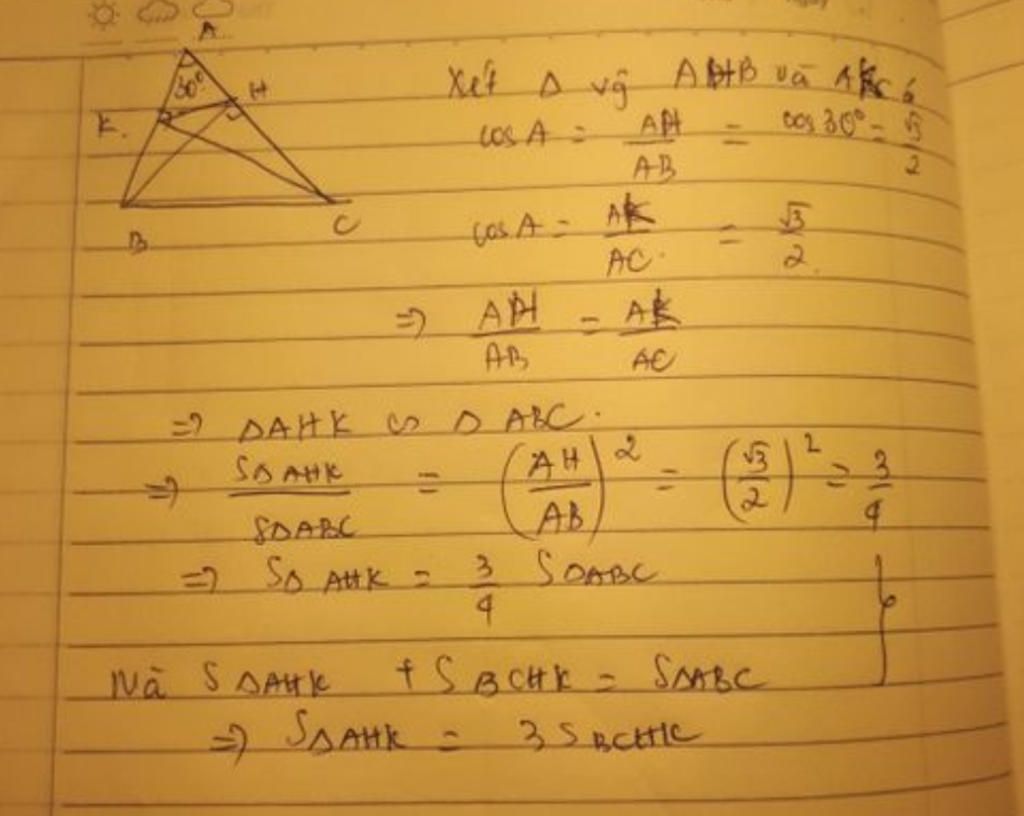 A
30°
H
K.
B
C
Xét Δ vg AHB và AKC có
cos A = AH/AB = cos 30° = √3/2
cos A = AK/AC = √3/2
=> AH/AB = AK/AC
=> ΔAHK ∽ ΔABC.
=> SΔAHK/SΔABC = (AH/AB)² = (√3/2)² = 3/4
=> SΔAHK = 3/4 SΔABC
Mà SΔAHK + SBCHK = SΔABC
=> SΔAHK = 3SBCHK